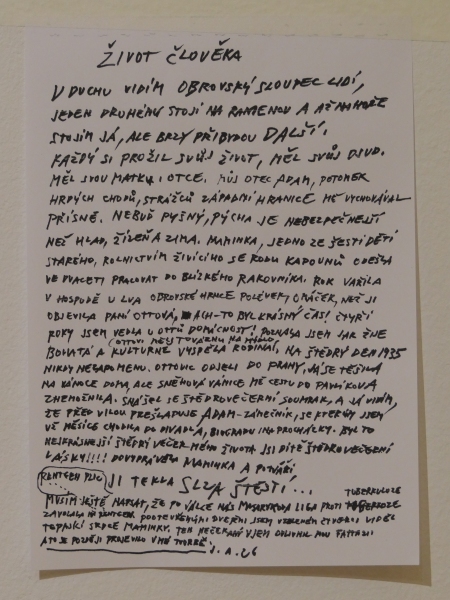 ŽIVOT ČLOVĚKA
V DUCHU VIDÍM OBROVSKÝ SLOUPEC LIDÍ,
JEDEN DRUHÉMU STOJÍ NA RAMENOU A AŽ NAHOŘE
STOJÍM JÁ, ALE BRZY PŘIBYDOU DALŠÍ.
KAŽDÝ SI PROŽIL SVŮJ ŽIVOT, MĚL SVŮJ OSUD.
MĚL SVOU MATKU I OTCE. MŮJ OTEC ADAM, POTOMEK
HRDÝCH CHODŮ, STRÁŽCŮ ZÁPADNÍ HRANICE MĚ VYCHOVÁVAL
PŘÍSNĚ. NEBUĎ PYŠNÝ, PÝCHA JE NEBEZPEČNEJŠÍ
NEŽ HLAD, ŽÍZEŇ A ZIMA. MAMINKA, JEDNO ZE ŠESTI DĚTÍ
STARÉHO, ROLNICTVÍM ŽIVÍCÍHO SE RODU KAPOUNŮ ODEŠLA
VE DVACETI PRACOVAT DO BLÍZKÉHO RAKOVNÍKA. ROK VAŘILA
V HOSPODĚ U LVA OBROVSKÉ HRNCE POLÉVEK, OMÁČEK, NEŽ JI
OBJEVILA PANÍ OTTOVÁ, ACH-TO BYL KRÁSNÝ ČAS! ČTYŘI
ROKY JSEM VEDLA U OTTŮ DOMÁCNOST! POZNALA JSEM JAK ŽIJE
(OTTOVI MĚLI TOVÁRNU NA MÝDLO)
BOHATÁ A KULTURNĚ VYSPĚLÁ RODINA, NA ŠTĚDRÝ DEN 1935
NIKDY NEZAPOMENU. OTTOVIC ODJELI DO PRAHY, JÁ SE TĚŠILA
NA VÁNOCE DOMA, ALE SNĚHOVÁ VÁNICE MĚ CESTU DO PAVLÍKOVA
ZNEMOŽNILA. SNÁŠEL SE ŠTĚDROVEČERNÍ SOUMRAK, A JÁ VIDÍM,
ŽE PŘED VILOU PŘEŠLAPUJE ADAM-ZÁMEČNÍK, SE KTERÝM JSEM
UŽ MĚSÍC CHODILA DO DIVADLA, BIOGRADU I NA PROCHÁZKY. BYL TO
NEJKRÁSNĚJŠÍ ŠTĚDRÝ VEČER MÉHO ŽIVOTA JSI DÍTĚ ŠTĚDROVEČERNÍ
LÁSKY!!!! DOVYPRÁVĚLA MAMINKA A PO TVÁŘI
JÍ TEKLA SLZA ŠTĚSTÍ...
RENTGEN PLIC
MUSÍM JEŠTĚ NAPSAT, ŽE PO VÁLCE NÁS MASARYKOVA LIGA PROTI TUBERKULOZE
ZAVOLALA NA RENTGEN. POOTEVŘENÝMI DVEŘMI JSEM VIDĚL
TEPAJÍCÍ SRDCE MAMINKY. TEN NEČEKANÝ VJEM OVLIVNIL MOU FANTAZII
A TO SE POZDĚJI PROJEVILO V MÉ TVORBĚ.
J.A.26